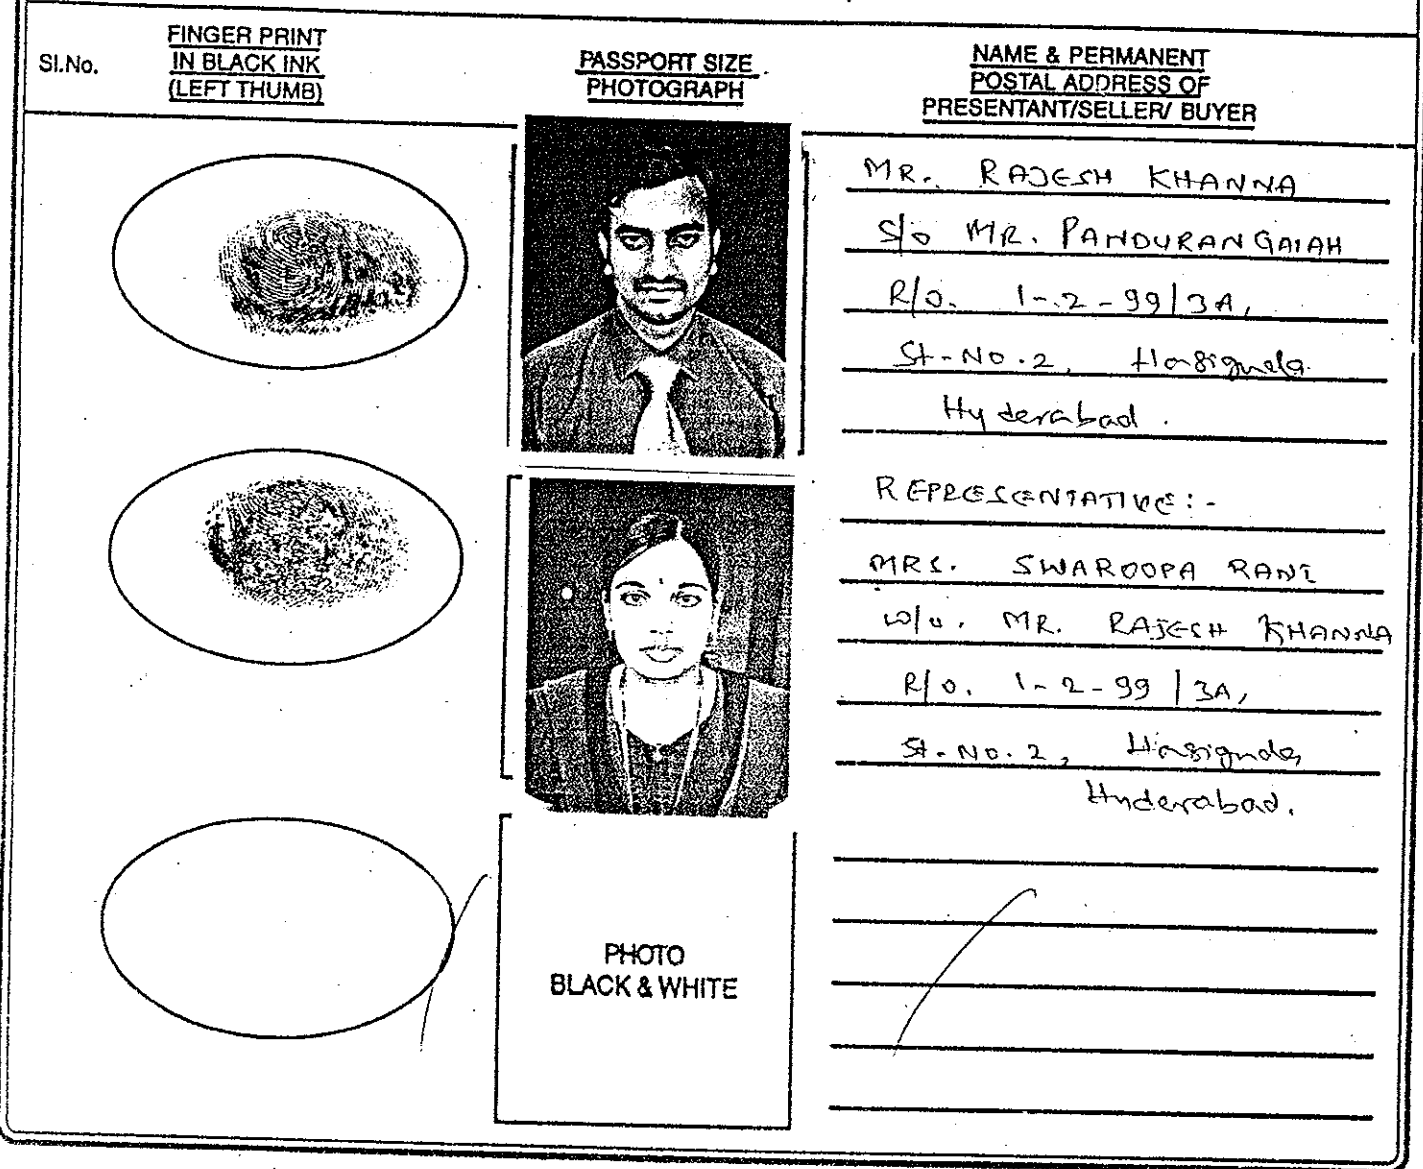 Sl.No.
FINGER PRINT
IN BLACK INK
(LEFT THUMB)
PASSPORT SIZE
PHOTOGRAPH
NAME & PERMANENT
POSTAL ADDRESS OF
PRESENTANT/SELLER/ BUYER
MR. RAJESH KHANNA
S/o MR. PANDURANGAIAH
R/o. 1-2-99/3A,
St-No.2,
Hyderabad.
REPRESENTATIVE:-
MRS. SWAROOPA RANI
w/o. MR. RAJESH KHANNA
R/o. 1-2-99/3A,
St-No.2,
Hyderabad.
PHOTO
BLACK & WHITE